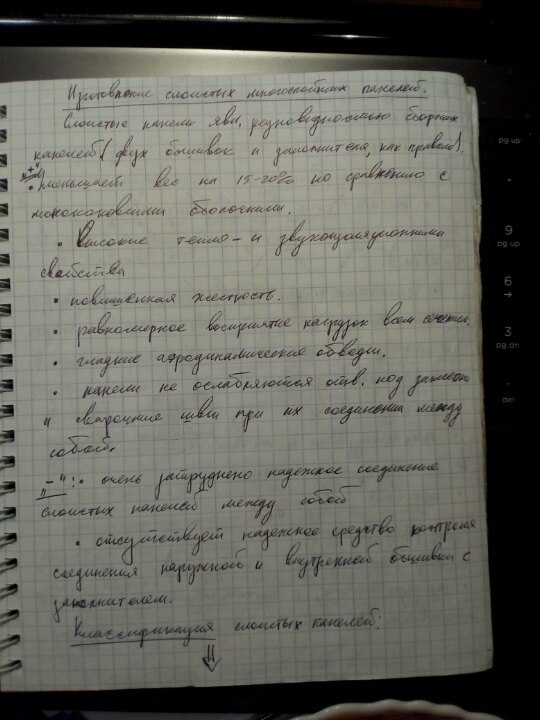 Изготовление слоистых многослойных панелей.
Слоистые панели явл. разновидностью сборных
панелей (двух обшивок и заполнителя, как правило).
"+"
• уменьшает вес на 15-20% по сравнению с
монококовыми оболочками.
• Высокие тепло- и звукоизоляционными
свойства
• повышенная жесткость.
• равномерное восприятие нагрузок всем сечением.
• гладкие аэродинамические обводы.
• панели не ослабляются отв. под заклепки
и сварочные швы при их соединении между
собой.
"-": • очень затруднено надежное соединение
слоистых панелей между собой
• отсутствует надежное средство контроля
соединения наружной и внутренней обшивки с
заполнителем.
Классификация слоистых панелей:
pg up
9
pg up
6
→
3
pg dn
del